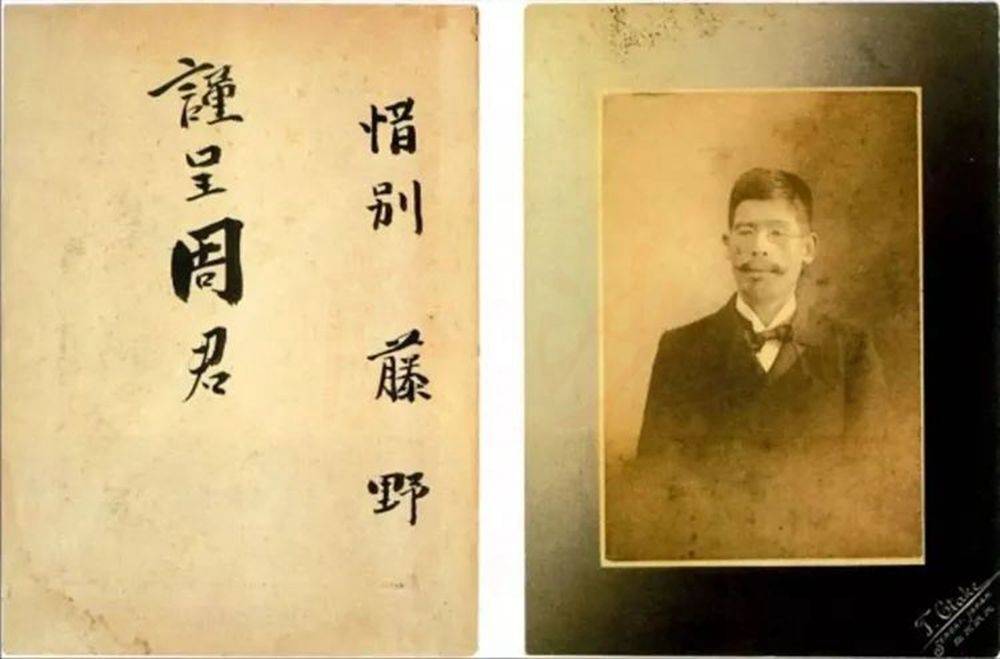 惜別 藤野
謹呈周君
T. Otake
Sendai Japan